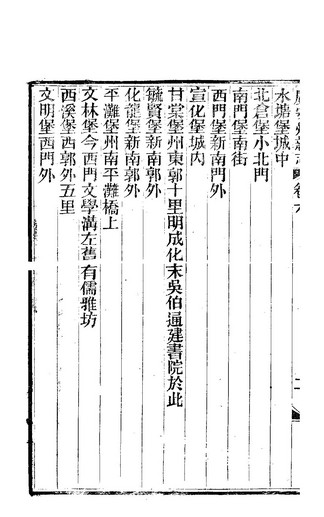 州新志 卷六
水塘堡城中
北倉堡小北門
南門堡南街
西門堡新南門外
宣化堡城內
甘棠堡州東郭十里明成化末吳伯通建書院於此
毓賢堡新南郭外
化龍堡新南郭外
平灘堡州南平灘橋上
文林堡今西門文學溝左舊有儒雅坊
西溪堡西郭外五里
文明堡西門外